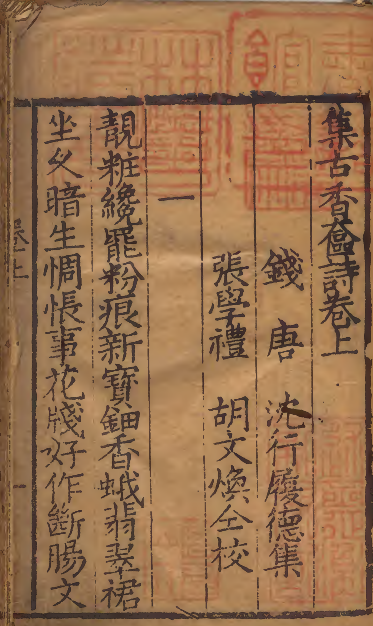 集古香奩詩卷上
錢唐 沈行履德集
張學禮 胡文煥仝校
一
靚粧纔罷粉痕新寶鈿香蛾翡翠裙
坐久暗生惆悵事花牋好作斷腸文
卷上